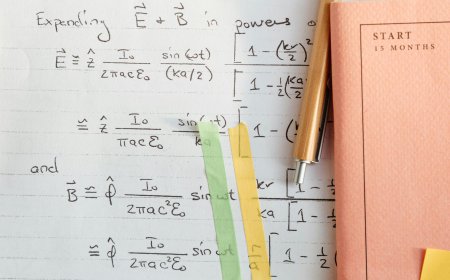 Expending E⃗ & B⃗ in powers
E⃗ ≅ ẑ I₀/(2πacε₀) sin(ωt)/(ka/2) [1 - (kr/2)²
[1 - ½(ka
≅ ẑ I₀/(πacε₀) sin(ωt)/ka [1 - (
and
B⃗ ≅ φ̂ I₀/(2πac²ε₀) sin ωt kr/ka [1 - ½
[1 - ½
≅ φ̂ I₀/(2πac²ε₀) sin ωt [1 - ½
START
15 MONTHS